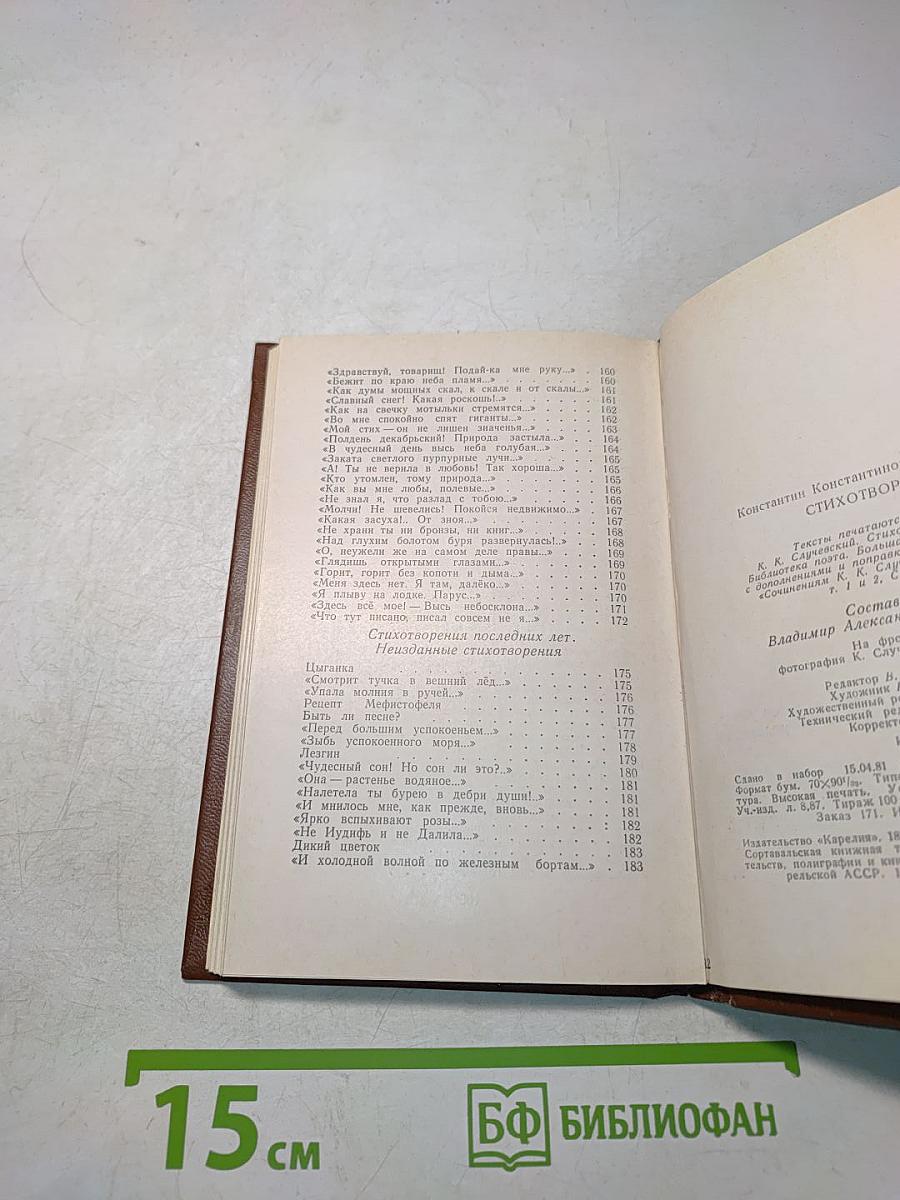 «Здравствуй, товарищ! Подай-ка мне руку...» . 160
«Бежит по краю неба пламя...» . . . . . . . 160
«Как думы мощных скал, к скале и от скалы...» 161
«Славный снег! Какая роскошь!..» . . . . . . 161
«Как на свечку мотыльки стремятся...» . . . . 162
«Во мне спокойно спят гиганты...» . . . . . 162
«Мой стих — он не лишен значенья...» . . . . 163
«Полдень декабрьский! Природа застыла...» . . 164
«В чудесный день высь неба голубая...» . . . 164
«Заката светлого пурпурные лучи...» . . . . 165
«А! Ты не верила в любовь! Так хороша...» . . 165
«Кто утомлен, тому природа...» . . . . . . 165
«Как вы мне любы, полевые...» . . . . . . 166
«Не знал я, что разлад с тобою...» . . . . . 166
«Молчи! Не шевелись! Покойся недвижимо...» . 167
«Какая засуха!.. От зноя...» . . . . . . . 167
«Не храни ты ни бронзы, ни книг...» . . . . 168
«Над глухим болотом буря развернулась!..» . . 168
«О, неужели же на самом деле правы...» . . . 169
«Глядишь открытыми глазами...» . . . . . . 169
«Горит, горит без копоти и дыма...» . . . . . 170
«Меня здесь нет. Я там, далёко...» . . . . . 170
«Я плыву на лодке. Парус...» . . . . . . . 170
«Здесь всё мое! — Высь небосклона...» . . . . 171
«Что тут писано, писал совсем не я...» . . . . 172
Стихотворения последних лет.
Неизданные стихотворения
Цыганка . . . . . . . . . . . 175
«Смотрит тучка в вешний лёд...» . . . . . . 175
«Упала молния в ручей...» . . . . . . . . 176
Рецепт Мефистофеля . . . . . . . . . 176
Быть ли песне? . . . . . . . . . . 177
«Перед большим успокоеньем...» . . . . . . 177
«Зыбь успокоенного моря...» . . . . . . . 178
Лезгин . . . . . . . . . . . 179
«Чудесный сон! Но сон ли это?..» . . . . . 180
«Она — растенье водяное...» . . . . . . . 181
«Налетела ты бурею в дебри души!..» . . . . 181
«И мнилось мне, как прежде, вновь...» . . . . 181
«Ярко вспыхивают розы...» . . . . . . . : 182
«Не Иудифь и не Далила...» . . . . . . . 182
Дикий цветок . . . . . . . . . . 183
«И холодной волной по железным бортам...» . 183
Константин Константино
СТИХОТВОР
Тексты печатаются
К. К. Случевский. Стихо
Библиотека поэта. Больша
с дополнениями и поправк
«Сочинениям К. К. Случ
т. 1 и 2, С
Состав
Владимир Алексан
На фро
фотография К. Случ
Редактор В.
Художник
Художественный ре
Технический ред
Коррект
Сдано в набор 15.04.81
Формат бум. 70×90¹/₃₂. Типо
тура. Высокая печать. Ус
Уч.-изд. л. 8,87. Тираж 100
Заказ 171. И
Издательство «Карелия», 18
Сортавальская книжная т
тельств, полиграфии и кни
рельской АССР.
15 см
БФ БИБЛИОФАН